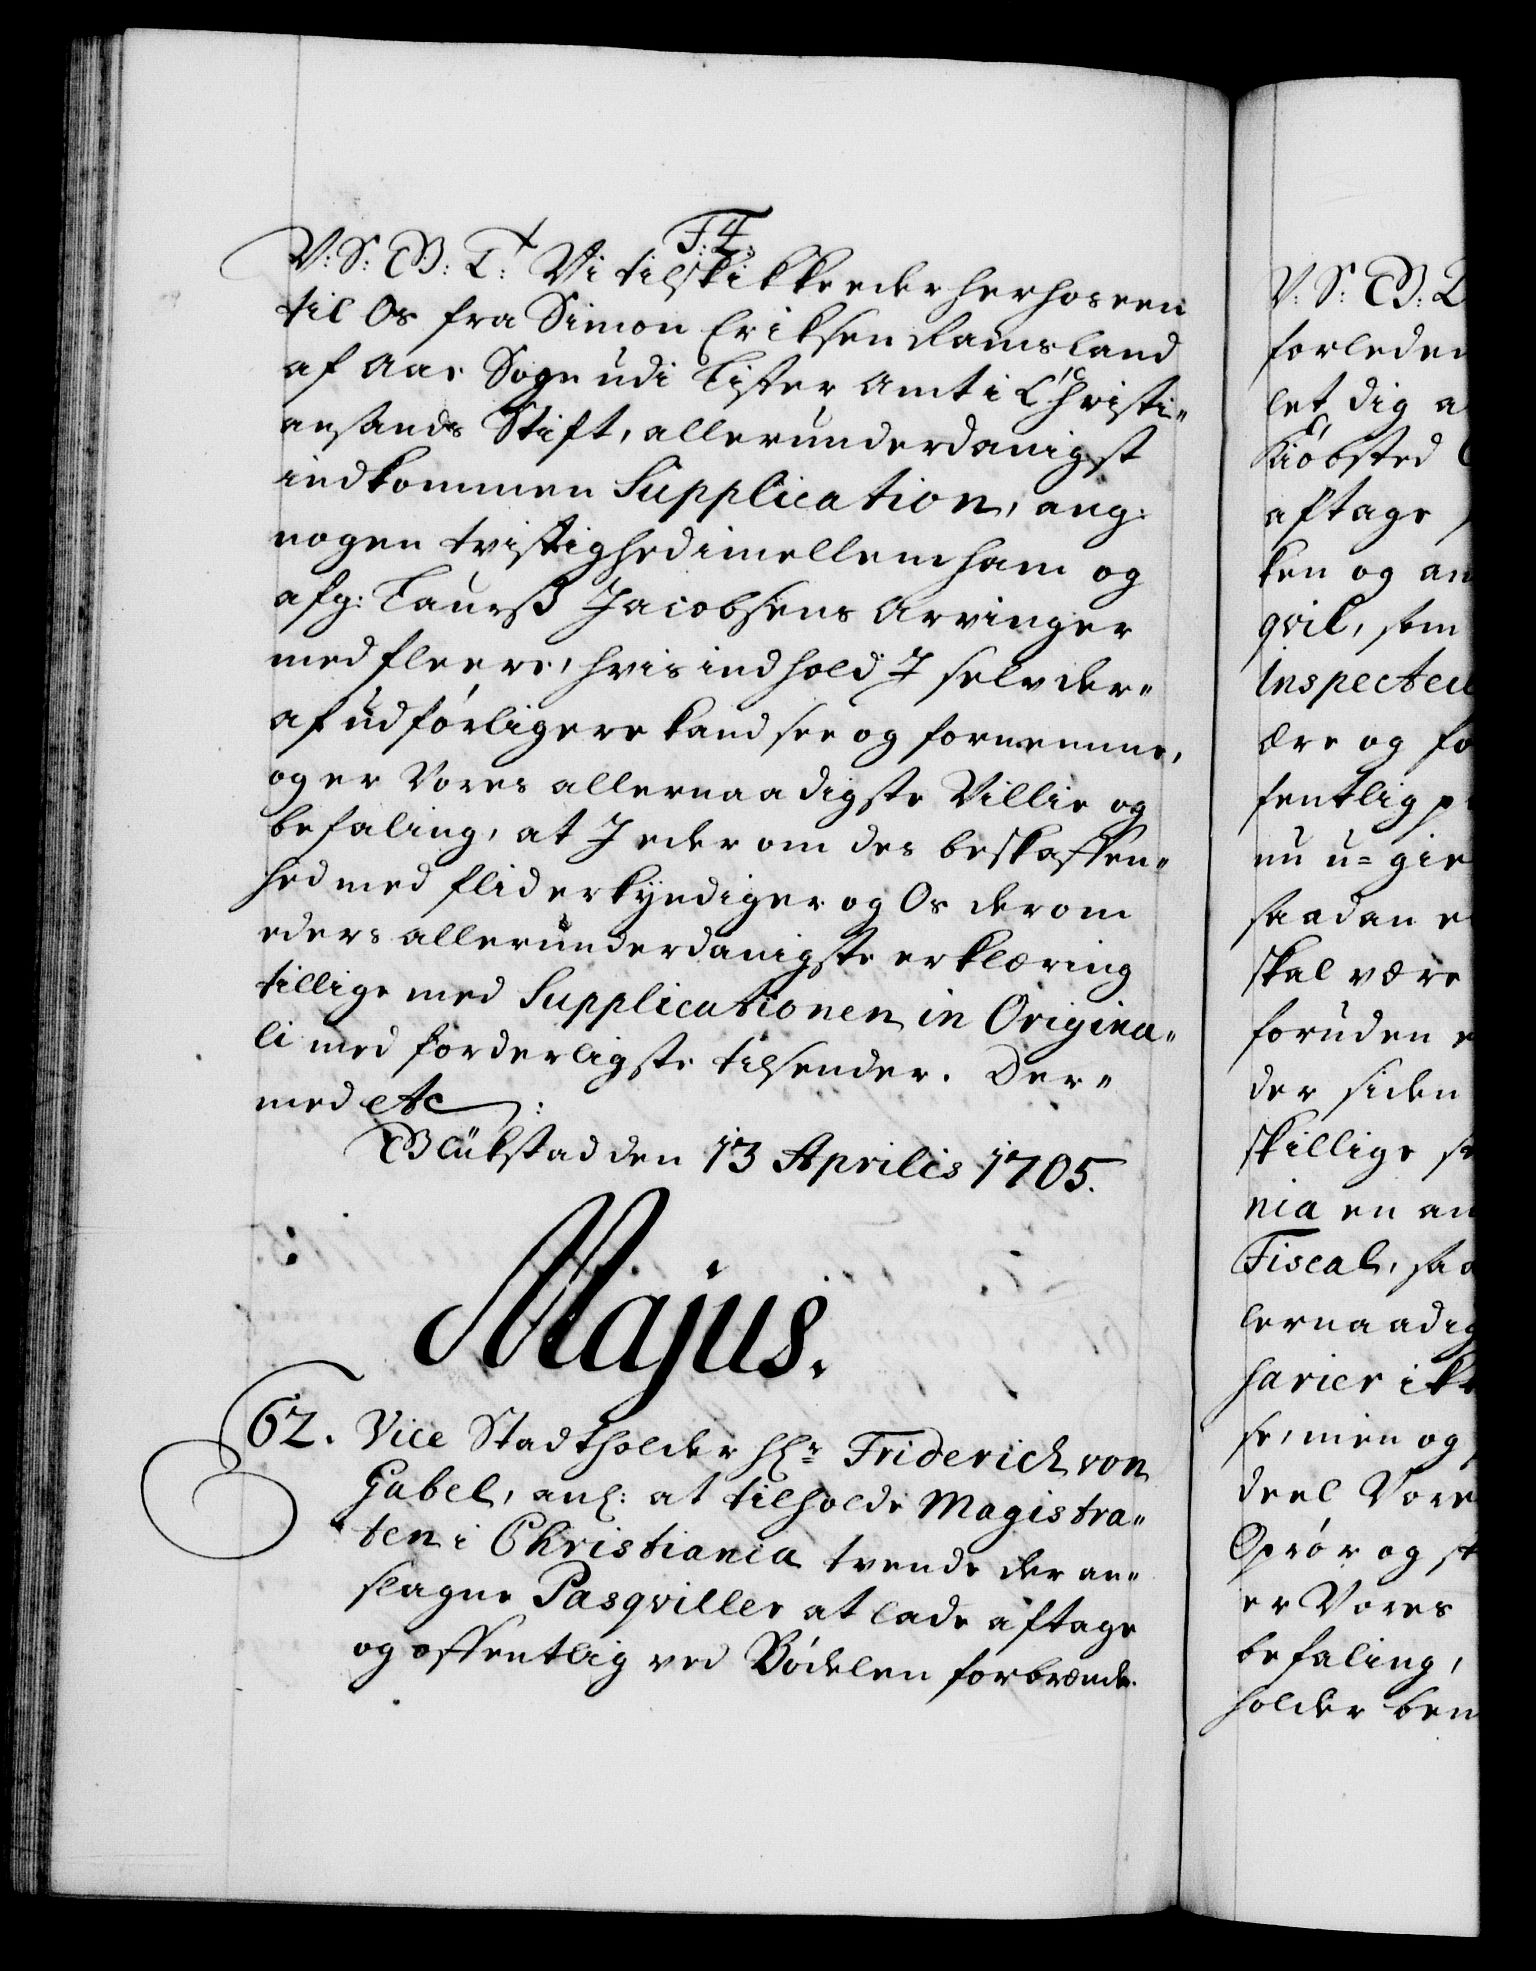 F. 4.
V: S: G: T: Vi tilskikke eder herhos een
til Os fra Simon Eriksen Ramsland
af Aas Sogn udi Lister Amt i Christi„
ansands Stift, allerunderdanigst
indkommen Supplication, ang:
nogen tvistighed imellem ham og
afg: Laurß Jacobsens Arvinger
med fleere, hvis indhold J selv der„
af udförligere kand see og fornemme,
og er Vores allernaadigste Villie og
befaling, at J eder om des beskaffen„
hed med flid erkyndiger og Os derom
eders allerunderdanigste erklæring
tillige med Supplicationen in Origina„
li med forderligste tilsender. Der„
med etc:
Glükstad den 13 Aprilis 1705.
Majus.
62. Vice Stadtholder Hr Friderich von
Gabel, anl: at tilholde Magistra„
ten i Christiania trende der an„
slagne Pasqviller at lade aftage
og offentlig ved Bödelen forbrænde.
V: S: G: T
forleden
let dig a
Kiöbsted
aftage
ken og an
qvil, som
Inspecteu
ære og fo
fentlig p
nu u=gie
saadan e
skal være
foruden e
der siden
skillige s
nia en an
Fiscal, saa
lernaadig
harier ikke
se, men og
deel Vore
Oprör og st
er Vores
befaling,
holder ben